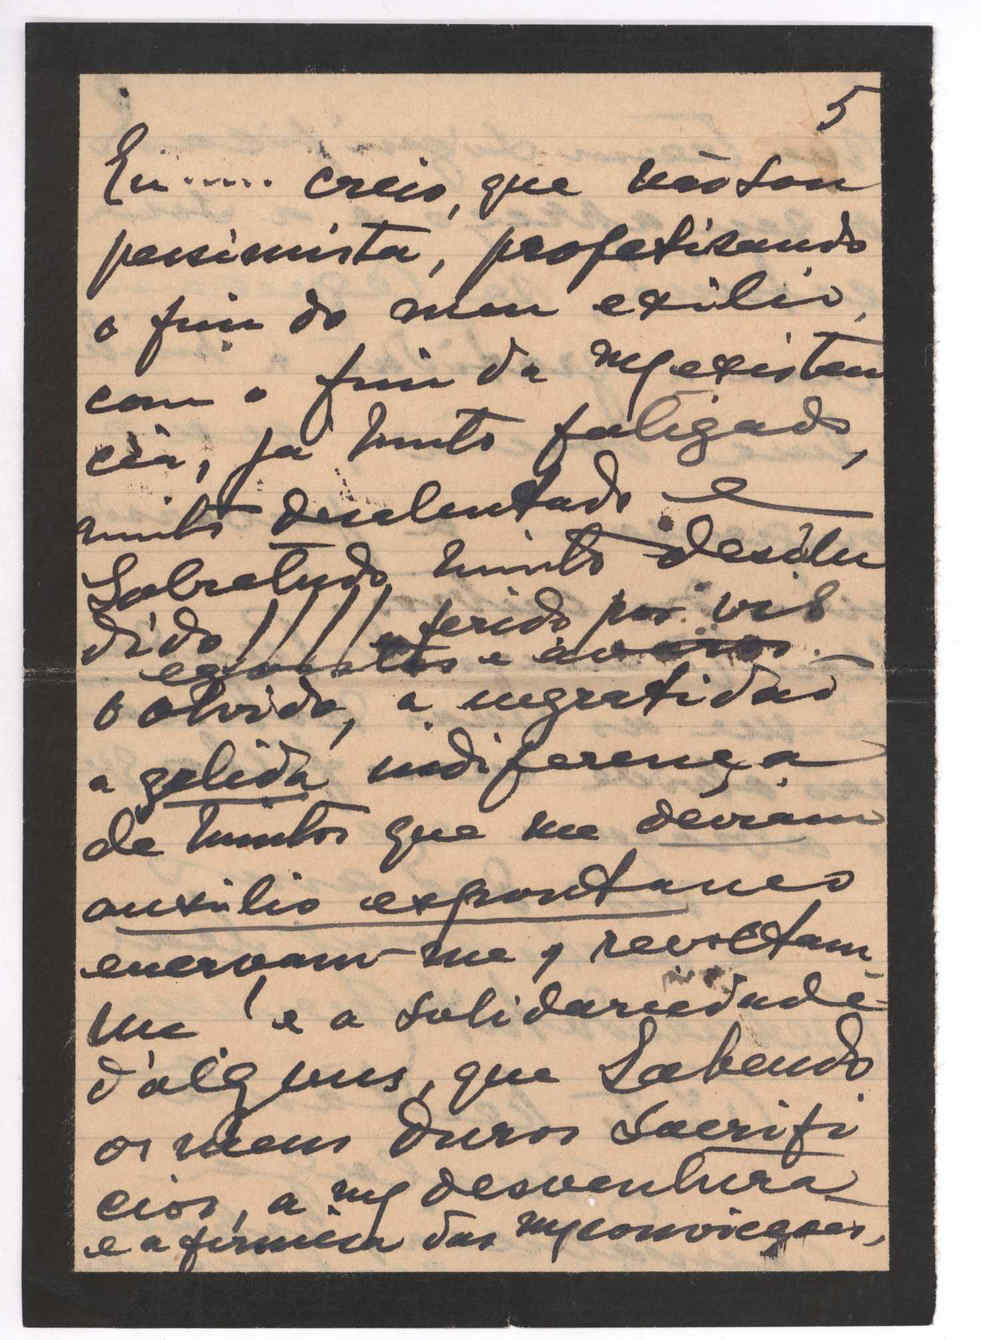 5
Eu ..... creio, que não sou
pessimista, profetisando
o fim do meu exilio,
com o fim da mª existen
cia, já muito fatigado,
muito desalentado e
sobretudo muito desilu
dido!!!! e ferido por vis
egoistas e avaros.
O olvido, a ingratidão
a gelida indiferença
de muitos que me deviam
auxilio expontaneo
enervam-me, revoltam-
me! e a solidariedade
d'alguns, que sabendo
os meus duros sacrifi
cios, a mª desventura
e a firmesa das mªs convicções,